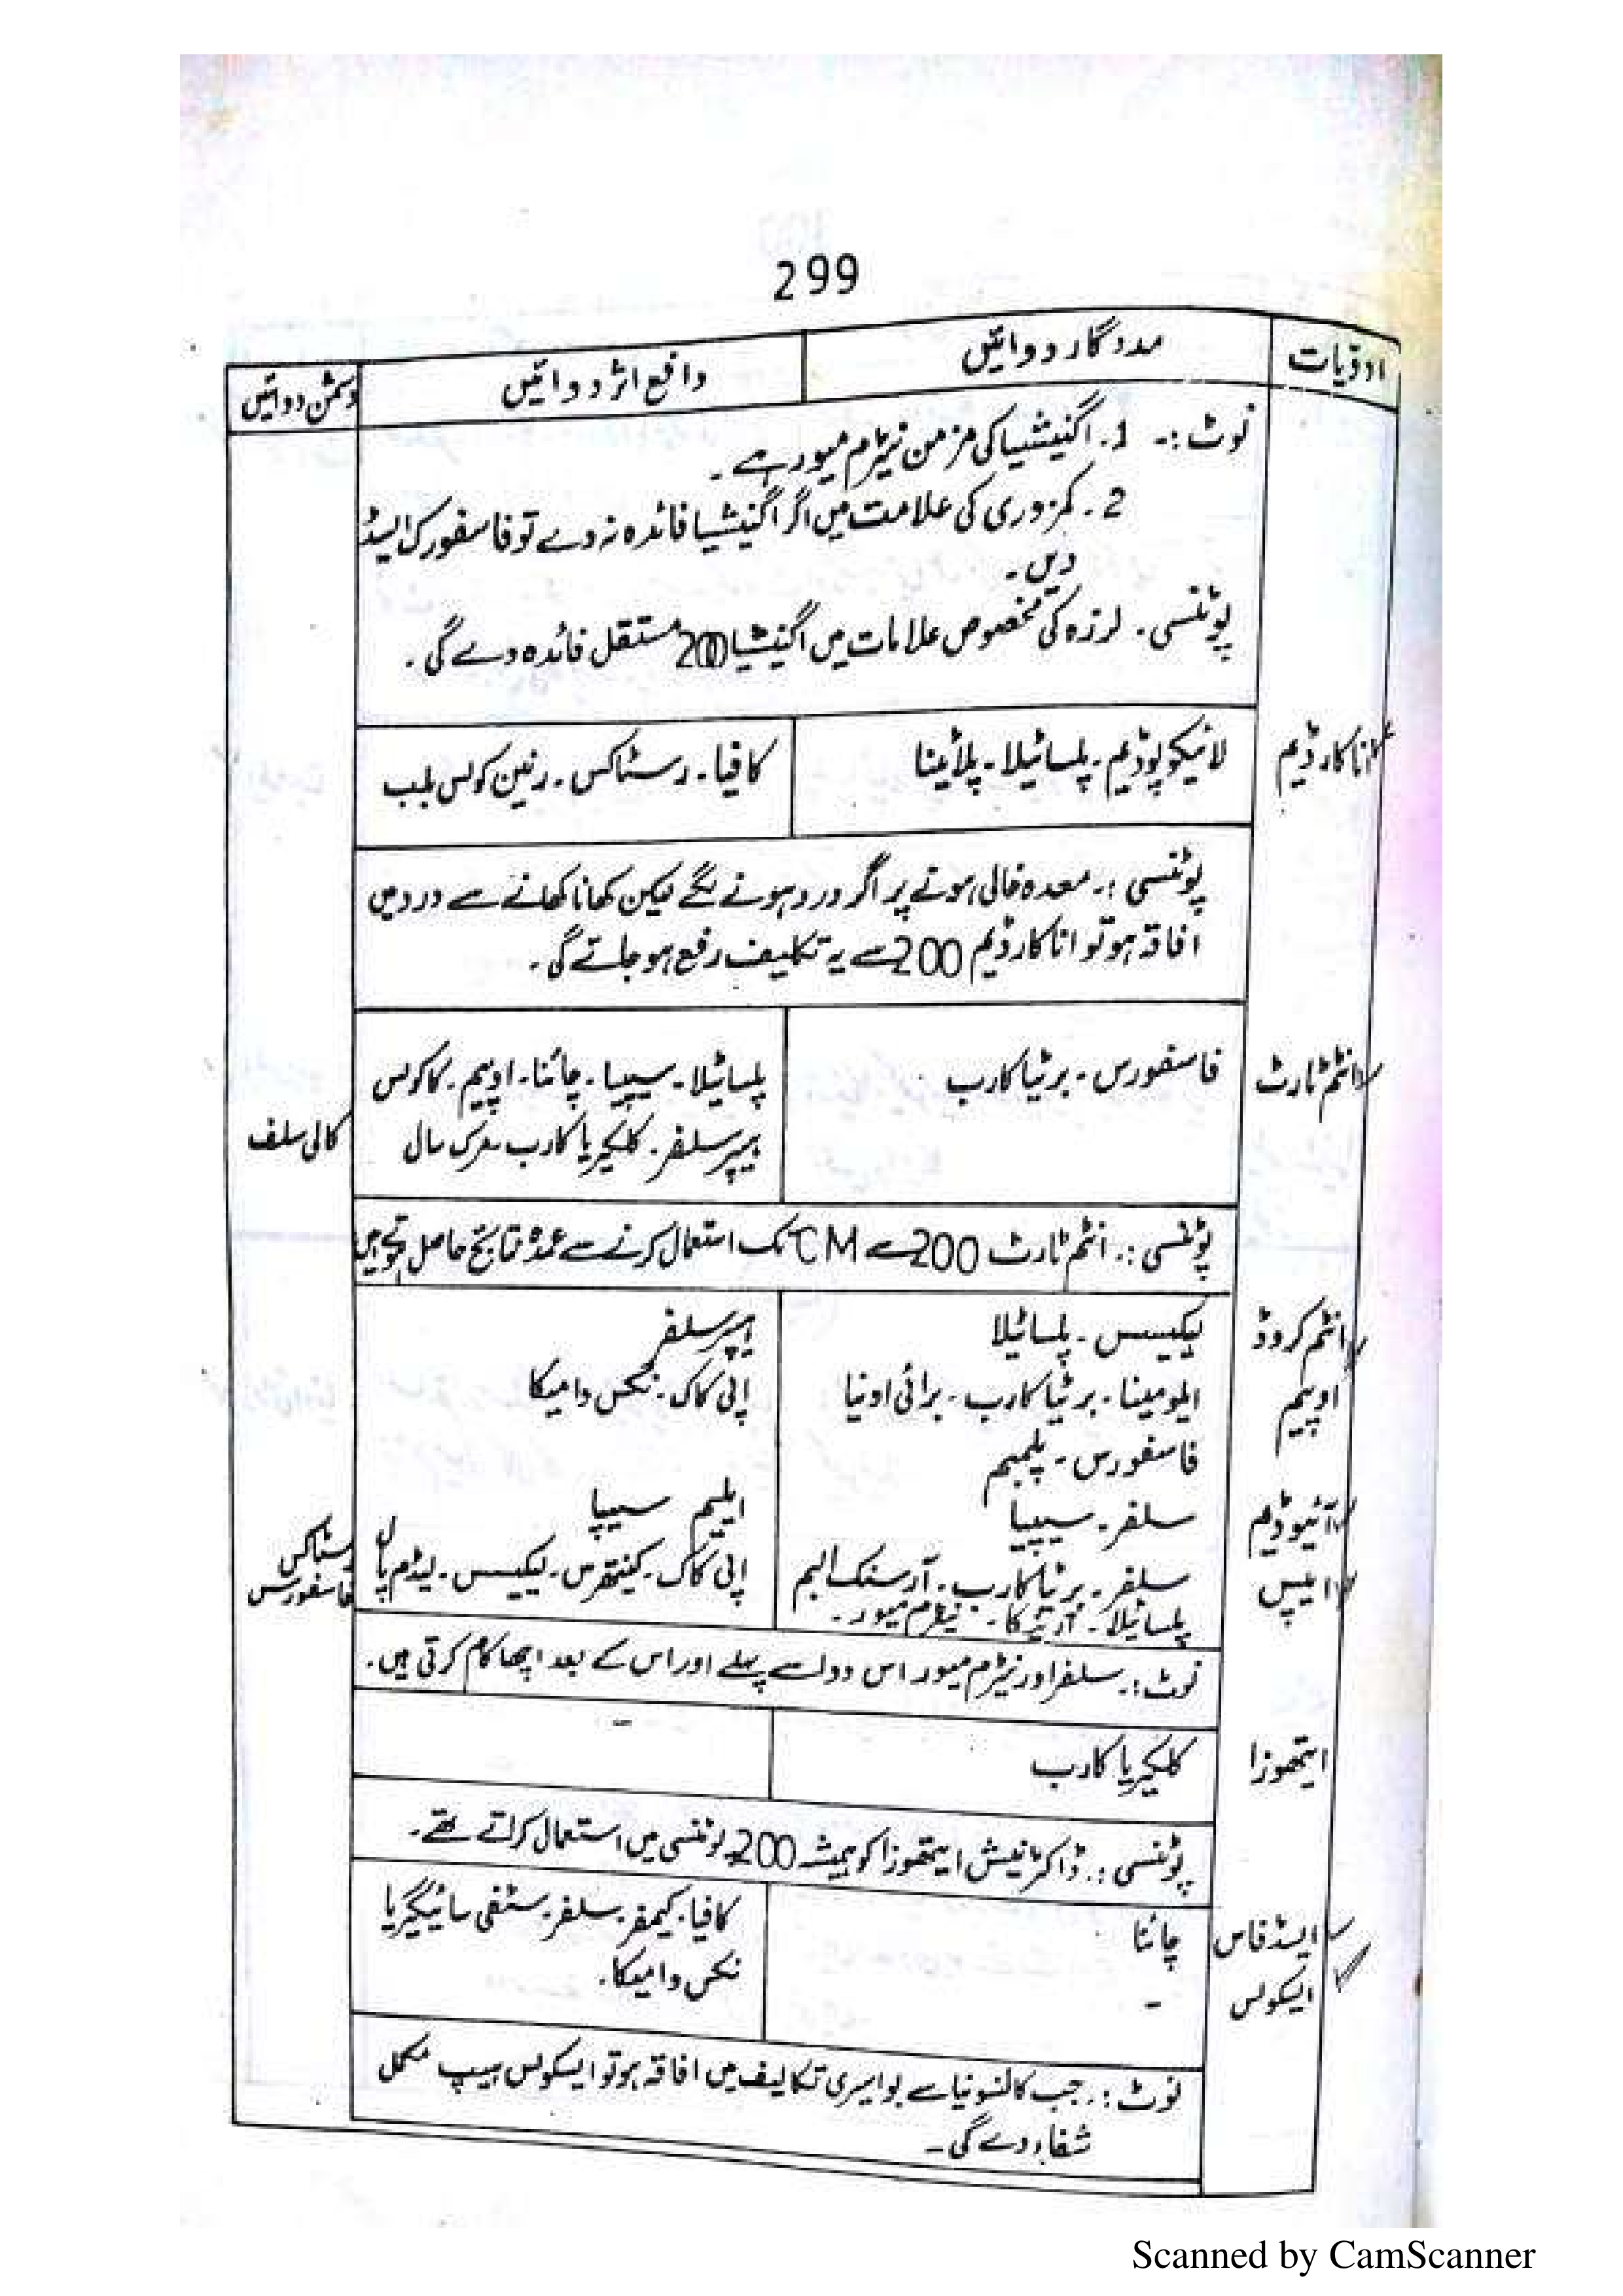 299
ادویات مددگار دوائیں دافع اثر دوائیں دشمن دوائیں
نوٹ :۔ 1۔ اگنیشیا کی مزمن نیٹرم میور ہے۔
2۔ کمزوری کی علامت میں اگر اگنیشیا فائدہ نہ دے تو فاسفورک ایسڈ
دیں۔
پوٹنسی۔ لرزہ کی مخصوص علامات میں اگنیشیا 200 مستقل فائدہ دے گی۔
اناکارڈیم لائیکوپوڈیم۔ پلساٹیلا۔ پلاٹینا کافیا۔ رسٹاکس۔ رنین کولس بلب
پوٹنسی :۔ معدہ خالی ہونے پر اگر درد ہونے لگے لیکن کھانا کھانے سے درد میں
افاقہ ہو تو اناکارڈیم 200 سے یہ تکلیف رفع ہو جاتے گی۔
انٹم ٹارٹ فاسفورس۔ برٹیا کارب پلساٹیلا۔ سیپیا۔ چائنا۔ اوپیم۔ کاکولس
ہیپر سلفر۔ کلکیریا کارب۔ مرک سال کالی سلف
پوٹنسی :۔ انٹم ٹارٹ 200 سے CM تک استعمال کرنے سے عمدہ نتائج حاصل ہوتے ہیں
انٹم کروڈ لیکیسس۔ پلساٹیلا ہیپر سلفر
اوپیم ایلومینا۔ برٹیا کارب۔ برائی اونیا اپی کاک۔ نکس وامیکا
فاسفورس۔ پلمبم
آئیوڈیم سلفر۔ سیپیا ایلیم سیپا
ایپس سلفر۔ برٹیا کارب۔ آرسنک البم اپی کاک۔ کینتھرس۔ لیکیسس۔ لیڈم پال رسٹاکس
پلساٹیلا۔ آرنیکا۔ نیٹرم میور۔ فاسفورس
نوٹ :۔ سلفر اور نیٹرم میور اس دوا سے پہلے اور اس کے بعد اچھا کام کرتی ہیں۔
ایتھوزا کلکیریا کارب –
پوٹنسی :۔ ڈاکٹر نیش ایتھوزا کو ہمیشہ 200 پوٹنسی میں استعمال کراتے تھے۔
ایسڈ فاس چائنا کافیا۔ کیمفر۔ سلفر۔ سٹفی سائیگیریا
ایسکولس – نکس وامیکا۔
نوٹ :۔ جب کالنسونیا سے بواسیری تکالیف میں افاقہ ہو تو ایسکولس ہیپ مکمل
شفاء دے گی۔
Scanned by CamScanner